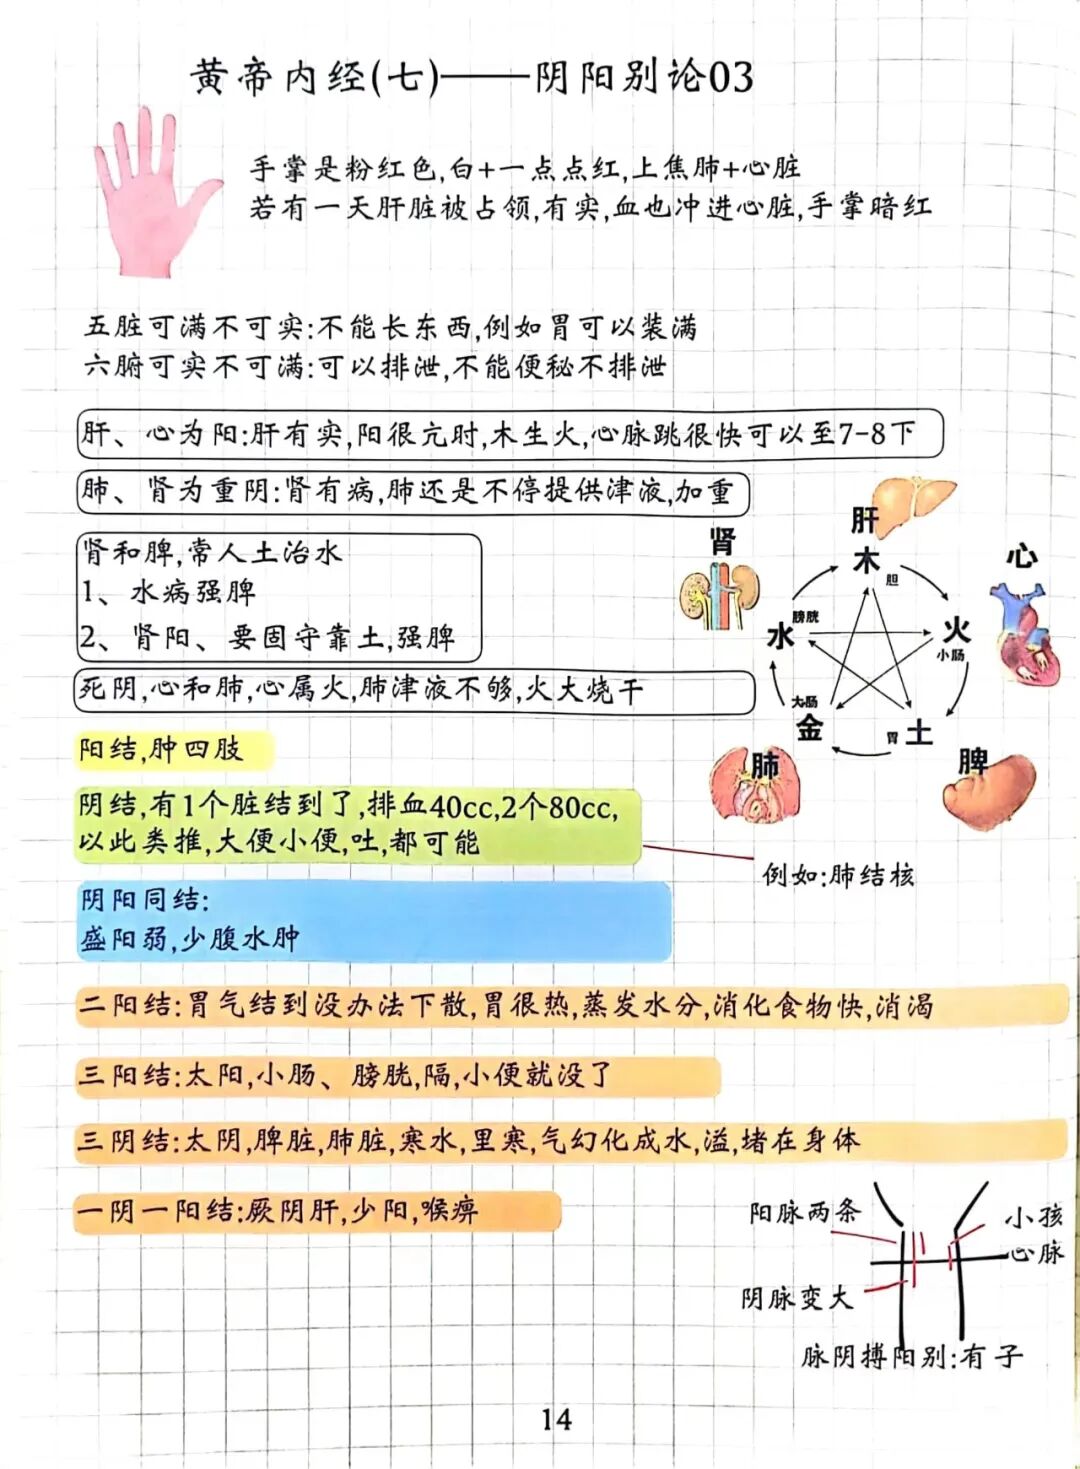 黄帝内经(七)——阴阳别论03
手掌是粉红色,白+一点点红,上焦肺+心脏
若有一天肝脏被占领,有实,血也冲进心脏,手掌暗红
五脏可满不可实:不能长东西,例如胃可以装满
六腑可实不可满:可以排泄,不能便秘不排泄
肝、心为阳:肝有实,阳很亢时,木生火,心脉跳很快可以至7-8下
肺、肾为重阴:肾有病,肺还是不停提供津液,加重
肾和脾,常人土治水
1、水病强脾
2、肾阳、要固守靠土,强脾
死阴,心和肺,心属火,肺津液不够,火大烧干
肝
肾
木
胆
心
膀胱
水
火
小肠
大肠
金
胃
土
肺
脾
阳结,肿四肢
阴结,有1个脏结到了,排血40cc,2个80cc,
以此类推,大便小便,吐,都可能
例如:肺结核
阴阳同结:
盛阳弱,少腹水肿
二阳结:胃气结到没办法下散,胃很热,蒸发水分,消化食物快,消渴
三阳结:太阳,小肠、膀胱,隔,小便就没了
三阴结:太阴,脾脏,肺脏,寒水,里寒,气幻化成水,溢,堵在身体
一阴一阳结:厥阴肝,少阳,喉痹
阳脉两条
小孩
心脉
阴脉变大
脉阴搏阳别:有子
14